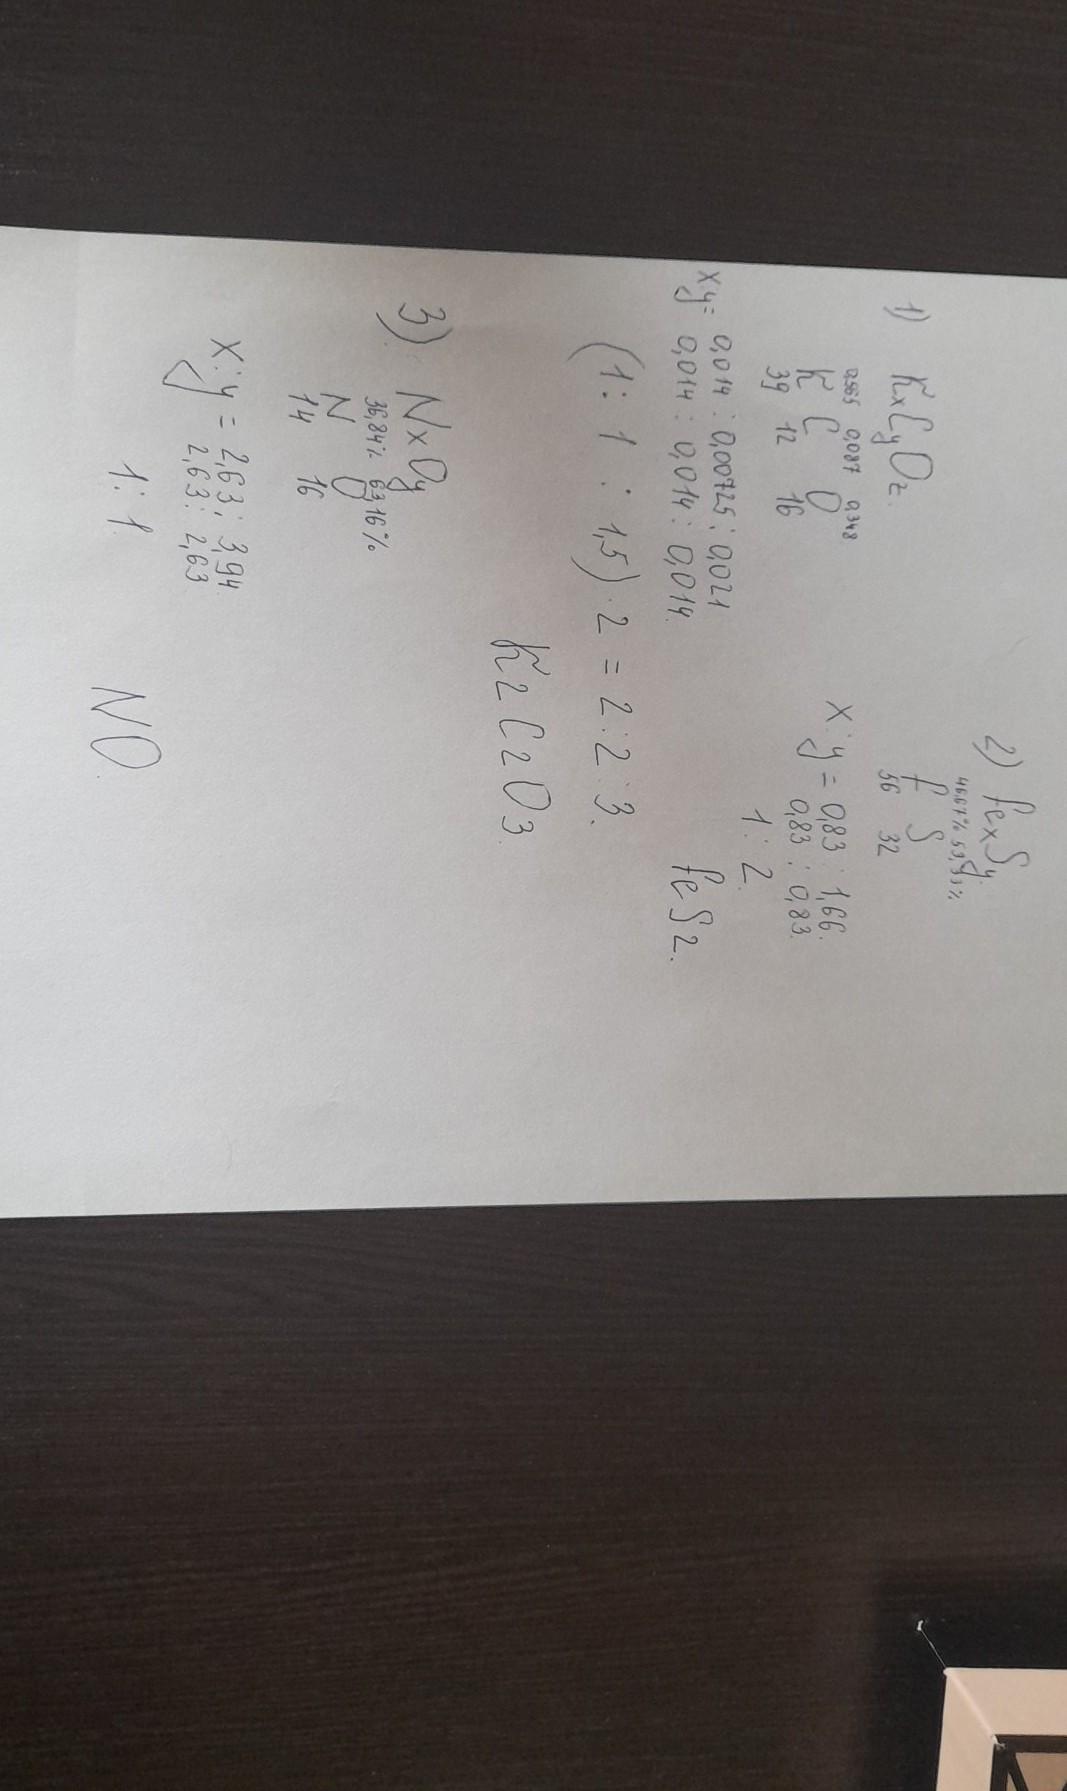 1) KxCyOz.
0,565 0,087 0,348
K C O
39 12 16
x:y= 0,014 : 0,00725 : 0,021
0,014 : 0,014 : 0,014.
(1 : 1 : 1,5) · 2 = 2 : 2 : 3.
K2C2O3.
2) FexSy.
46,67% 53,33%
F S
56 32
x:y = 0,83 : 1,66.
0,83 : 0,83.
1 : 2.
FeS2.
3) NxOy
36,84% 63,16%
N O
14 16
x:y = 2,63 : 3,94.
2,63 : 2,63
1 : 1
NO.